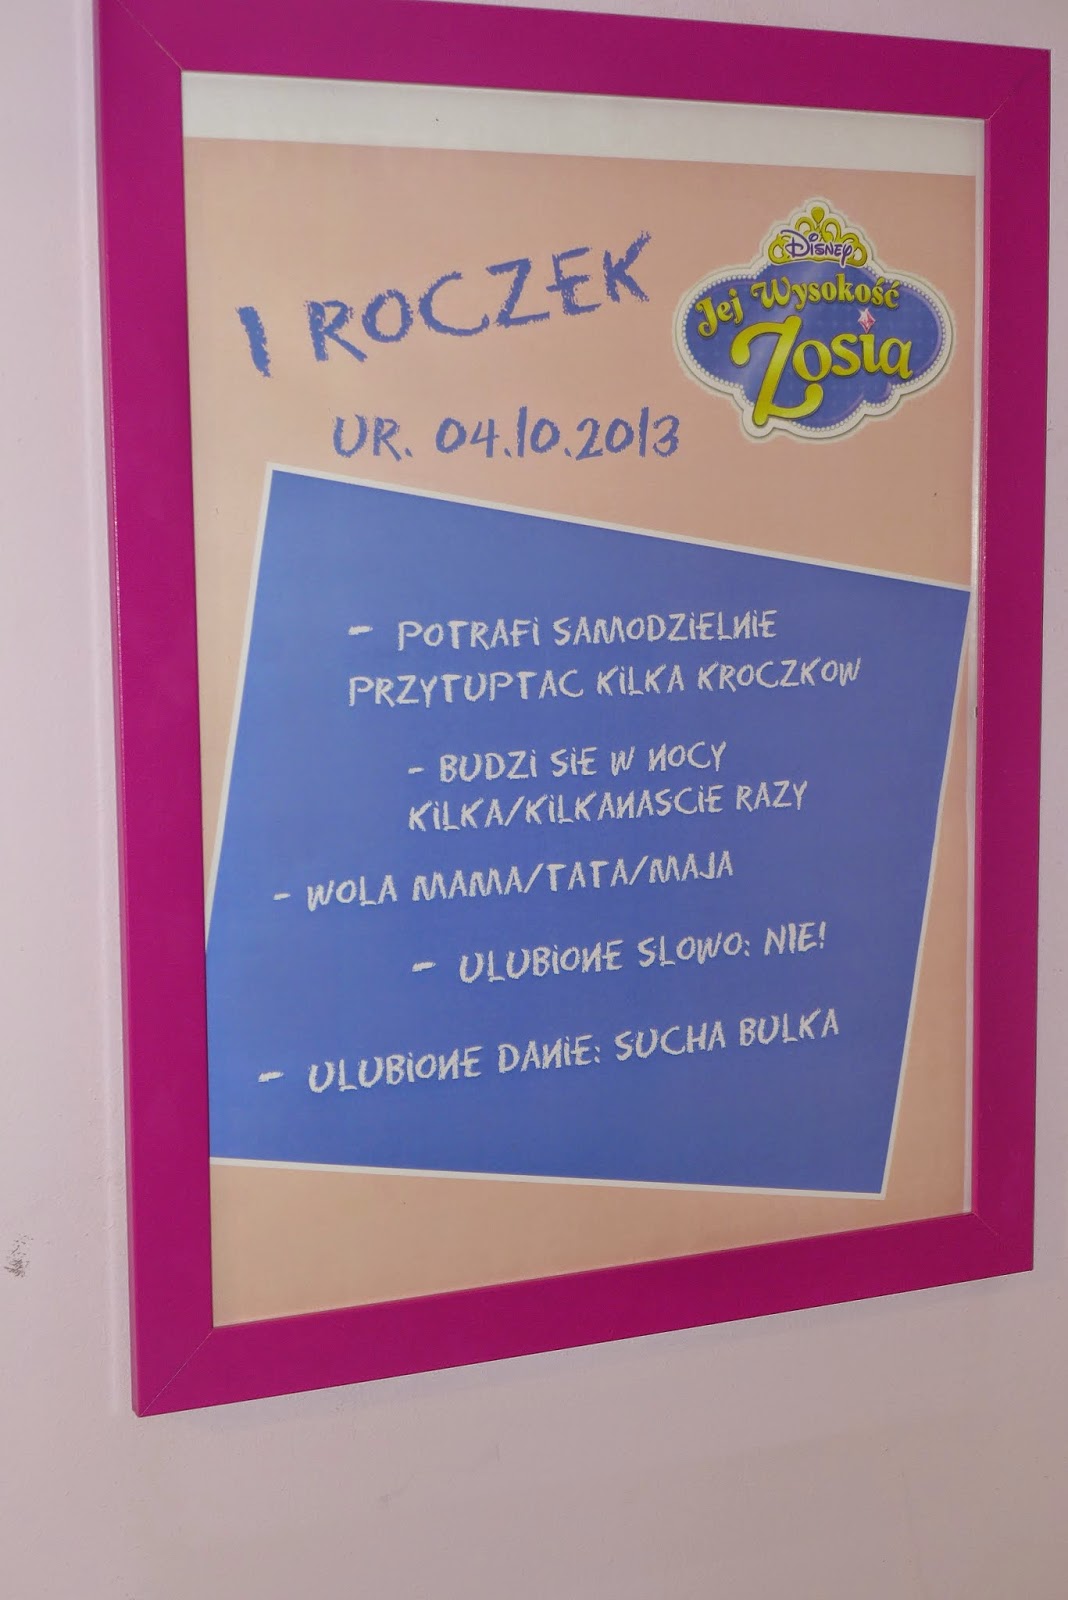 1 ROCZEK
DISNEY
Jej Wysokość
Zosia
UR. 04.10.2013
- POTRAFI SAMODZIELNIE
PRZYTUPTAC KILKA KROCZKOW
- BUDZI SIE W NOCY
KILKA/KILKANASCIE RAZY
- WOLA MAMA/TATA/MAJA
- ULUBIONE SLOWO: NIE!
- ULUBIONE DANIE: SUCHA BULKA